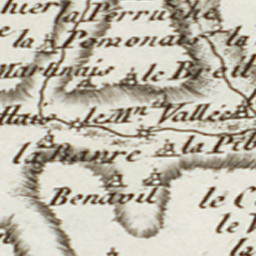 hier
la Perruche
la Pomonais
la
Martinais
le Breil
Hais
le Mn Vallée
la Barre
la Pib
Benavil
le C
le V
la